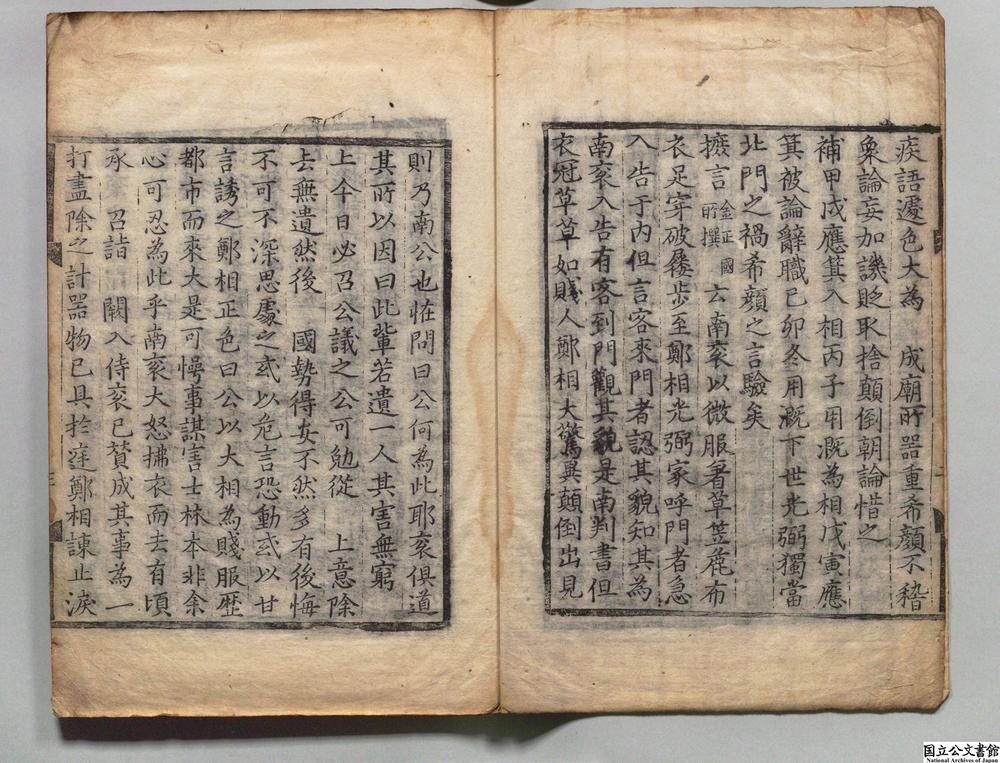 疾語遽色大為 成廟所器重希顔不稽
衆論妄加譏貶取捨顛倒朝論惜之
補甲戌應箕入相丙子用漑為相戊寅應
箕被論辭職己卯冬用漑下世光弼獨當
北門之禍希顔之言驗矣
摭言金正國所撰云南衮以微服著草笠麄布
衣足穿破屨步至鄭相光弼家呼門者急
入告于內但言客來門者認其貌知其為
南衮入告有客到門觀其貌是南判書但
衣冠草草如賤人鄭相大驚異顛倒出見
則乃南公也怪問曰公何為此耶衮俱道
其所以因曰此輩若遺一人其害無窮
上今日必召公議之公可勉從 上意除
去無遺然後 國勢得安不然多有後悔
不可不深思處之或以危言恐動或以甘
言誘之鄭相正色曰公以大相為賤服歷
都市而來大是可愕事謀害士林本非余
心可忍為此乎南衮大怒拂衣而去有頃
承 召詣 闕入侍衮已贊成其事為一
打盡除之計器物已具於庭鄭相諫止淚
国立公文書館
National Archives of Japan